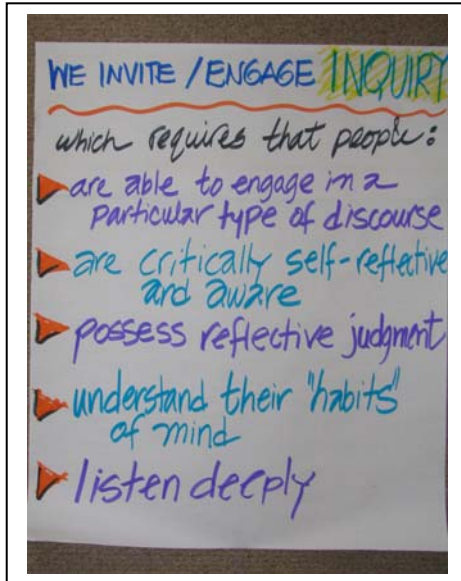 WE INVITE / ENGAGE INQUIRY
which requires that people:
are able to engage in a
particular type of discourse
are critically self-reflective
and aware
possess reflective judgment
understand their "habits"
of mind
listen deeply